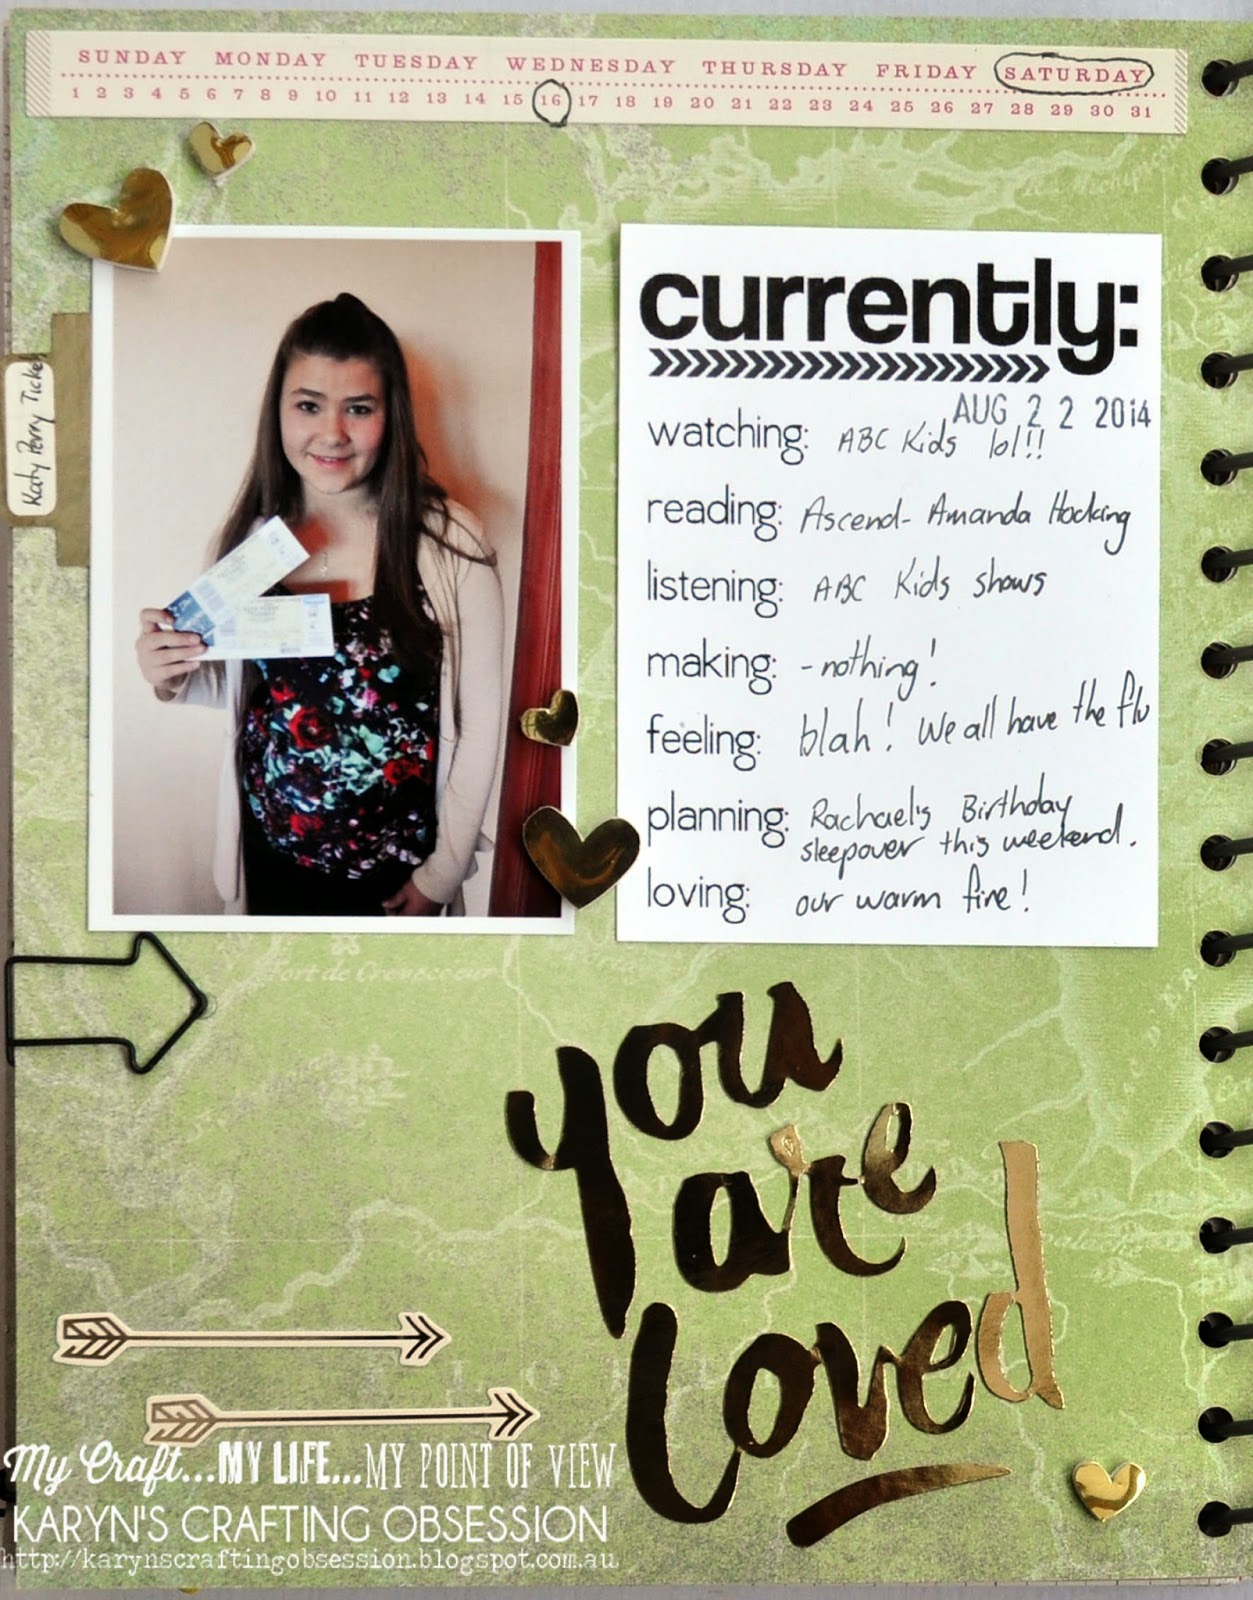 SUNDAY MONDAY TUESDAY WEDNESDAY THURSDAY FRIDAY SATURDAY
1 2 3 4 5 6 7 8 9 10 11 12 13 14 15 16 17 18 19 20 21 22 23 24 25 26 27 28 29 30 31
Katy Perry Ticke
currently:
AUG 22 2014
watching: ABC Kids lol!!
reading: Ascend- Amanda Hocking
listening: ABC Kids shows
making: -nothing!
feeling: blah! We all have the flu
planning: Rachael's Birthday
sleepover this weekend.
loving: our warm fire!
Fort de Crevecoeur
you
are
loved
My Craft...MY LIFE...MY POINT OF VIEW
KARYN'S CRAFTING OBSESSION
http://karynscraftingobsession.blogspot.com.au